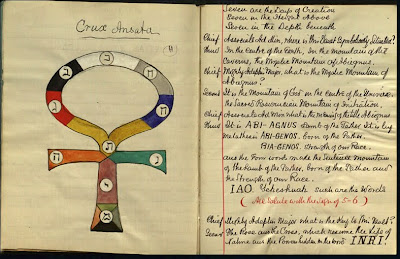 Crux Ansata
11
Seven are the Days of Creation
Seven in the Height Above
Seven in the Depth beneath
Chief Associate Adept, where is this symbolically Situated?
Third In the Centre of the Earth, in the Mountain of the
Caverns, the Mystic Mountain of Abiegnus.
Chief Mighty Adeptus Major, what is the Mystic Mountain of
Abiegnus?
Second It is the Mountain of God in the Centre of the Universe,
the Sacred Rosicrucian Mountain of Initiation.
Chief Associate Adept what is the meaning of the title Abiegnus
Third It is ABI-AGNUS Lamb of the Father. It is by
metathesis ABI-GENOS, born of the Father.
BIA-GENOS, strength of our Race.
and the four words make the Sentence Mountain
of the Lamb of the Father, born of the Father, and
the Strength of our Race.
IAO. Yeheshuah such are the Words
(All Salute with the Sign of 5=6)
Chief Mighty Adeptus Major what is the Key to this Vault?
Second The Rose and the Cross, which resume the Life of
Nature and the Powers hidden in the word INRI.